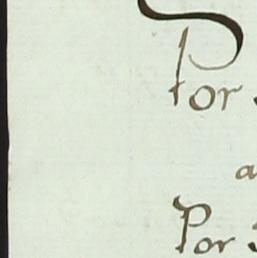 Por
a
Por